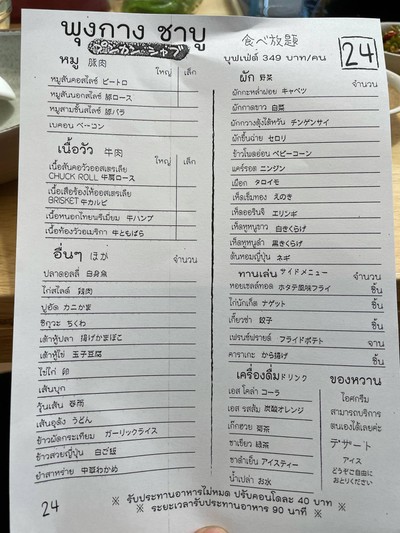 พุงกาง ชาบู
プンカーン シャブ
食べ放題
บุฟเฟ่ต์ 349 บาท/คน
24
หมู 豚肉 ใหญ่ เล็ก
หมูสันคอสไลซ์ ピートロ
หมูสันนอกสไลซ์ 豚ロース
หมูสามชั้นสไลซ์ 豚バラ
เบคอน ベーコン
เนื้อวัว 牛肉 ใหญ่ เล็ก
เนื้อสันคอวัวออสเตรเลีย
CHUCK ROLL 牛肩ロース
เนื้อเสือร้องไห้ออสเตรเลีย
BRISKET 牛カルビ
เนื้อหนอกไทยพรีเมี่ยม 牛ハンプ
เนื้อท้องวัวอเมริกา 牛ともばら
อื่นๆ ほか จำนวน
ปลาดอลลี่ 白身魚
ไก่สไลด์ 鶏肉
ปูอัด カニかま
ชิกุวะ ちくわ
เต้าหู้ปลา 揚げかまぼこ
เต้าหู้ไข่ 玉子豆腐
ไข่ไก่ 卵
เส้นบุก
วุ้นเส้น 春雨
เส้นอุด้ง うどん
ข้าวผัดกระเทียม ガーリックライス
ข้าวสวยญี่ปุ่น 白ご飯
ยำสาหร่าย 中華わかめ
ผัก 野菜 จำนวน
ผักกะหล่ำฝอย キャベツ
ผักกาดขาว 白菜
ผักกวางตุ้งไต้หวัน チンゲンサイ
ผักขึ้นฉ่าย セロリ
ข้าวโพดอ่อน ベビーコーン
แครอต ニンジン
เผือก タロイモ
เห็ดเข็มทอง えのき
เห็ดออรินจิ エリンギ
เห็ดหูหนูขาว 白きくらげ
เห็ดหูหนูดำ 黒きくらげ
ต้นหอมญี่ปุ่น ネギ
ทานเล่น サイドメニュー จำนวน
หอยเชลล์ทอด ホタテ風味フライ ชิ้น
ไก่นักเก็ต ナゲット ชิ้น
เกี๊ยวซ่า 餃子 ชิ้น
เฟรนช์ฟรายด์ フライドポテト จาน
คาราเกะ から揚げ ชิ้น
เครื่องดื่ม ドリンク
เอส โคล่า コーラ
เอส รสส้ม 炭酸オレンジ
เก๊กฮวย 菊茶
ชาเขียว 緑茶
ชาดำเย็น アイスティー
น้ำเปล่า お水
ของหวาน
ไอศกรีม
สามารถบริการ
ตนเองได้เลยค่ะ
デザート
アイス
どうぞご自由に
おとりください
24
※ รับประทานอาหารไม่หมด ปรับคนโดละ 40 บาท ※
※ ระยะเวลารับประทานอาหาร 90 นาที ※